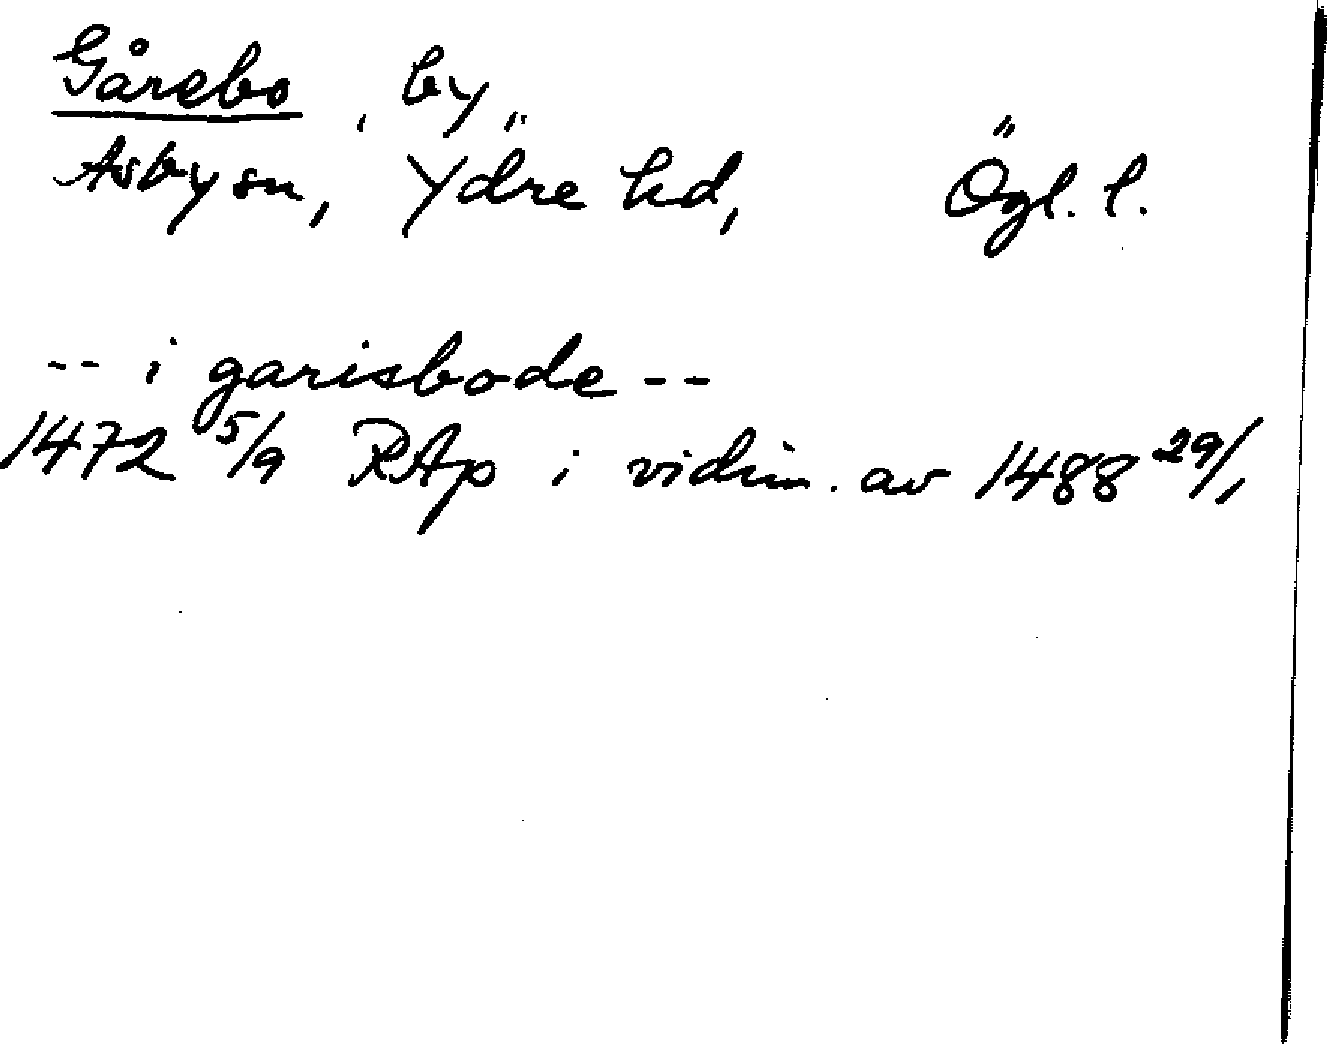 Gårebo, by,
Asby sn, Ydre hd, Ögl. l.
-- i garisbode --
1472 5/9 RAp i vidim. av 1488 29/1